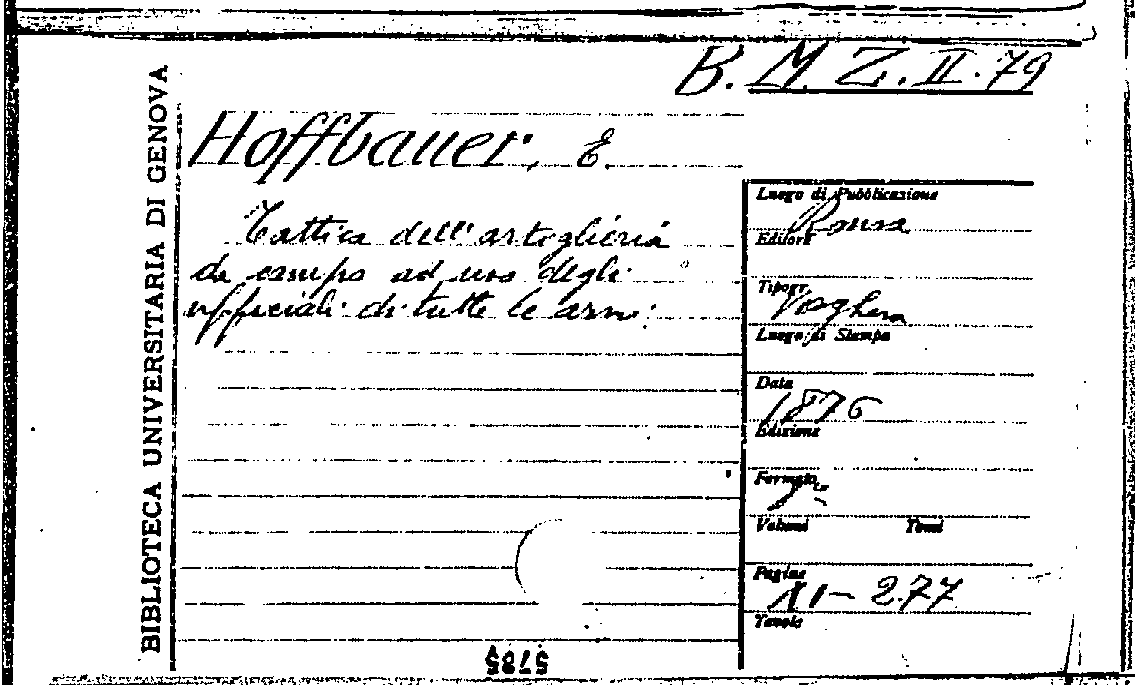 B. M. Z. II. 79
BIBLIOTECA UNIVERSITARIA DI GENOVA
Hoffbauer, E.
Tattica dell'artiglieria
da campo ad uso degli
ufficiali di tutte le armi.
Luogo di Pubblicazione
Roma
Editore
Tipogr.
Voghera
Luogo di Stampa
Data
1876
Edizione
Formato
Volumi Tomi
Pagine
XI - 277
Tavole